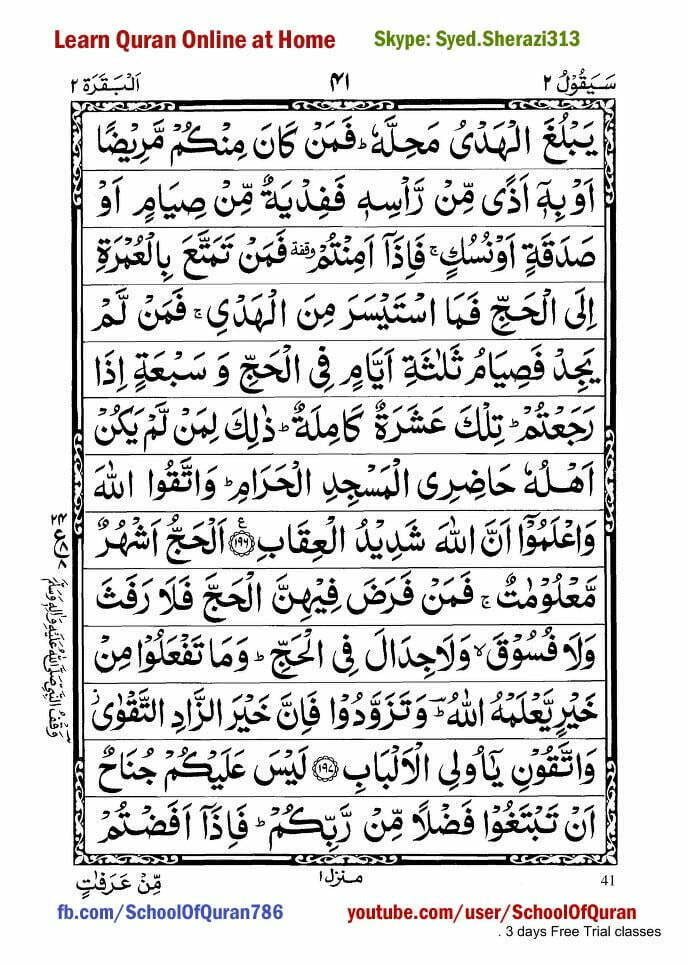 Learn Quran Online at Home Skype: Syed.Sherazi313
سَيَقُوۡلُ ۲ ۴۱ اَلۡبَقَرَة ۲
يَبۡلُغَ الۡهَدۡىُ مَحِلَّهٗ‌ؕ فَمَنۡ كَانَ مِنۡكُمۡ مَّرِيۡضًا
اَوۡ بِهٖۤ اَذًى مِّنۡ رَّاۡسِهٖ فَفِدۡيَةٌ مِّنۡ صِيَامٍ اَوۡ
صَدَقَةٍ اَوۡ نُسُكٍ‌ۚ فَاِذَآ اَمِنۡتُمۡ وقفة فَمَنۡ تَمَتَّعَ بِالۡعُمۡرَةِ
اِلَى الۡحَجِّ فَمَا اسۡتَيۡسَرَ مِنَ الۡهَدۡىِ‌ۚ فَمَنۡ لَّمۡ
يَجِدۡ فَصِيَامُ ثَلٰثَةِ اَيَّامٍ فِى الۡحَجِّ وَ سَبۡعَةٍ اِذَا
رَجَعۡتُمۡؕ‌ تِلۡكَ عَشَرَةٌ كَامِلَةٌ ‌ؕ ذٰ لِكَ لِمَنۡ لَّمۡ يَكُنۡ
اَهۡلُهٗ حَاضِرِى الۡمَسۡجِدِ الۡحَرَامِ‌ؕ وَاتَّقُوا اللّٰهَ
وَاعۡلَمُوۡٓا اَنَّ اللّٰهَ شَدِيۡدُ الۡعِقَابِ ﴿۱۹۶﴾ ع اَلۡحَجُّ اَشۡهُرٌ
مَّعۡلُوۡمٰتٌ ‌ۚ فَمَنۡ فَرَضَ فِيۡهِنَّ الۡحَجَّ فَلَا رَفَثَ
وَلَا فُسُوۡقَۙ وَلَا جِدَالَ فِى الۡحَجِّ ؕ وَمَا تَفۡعَلُوۡا مِنۡ
خَيۡرٍ يَّعۡلَمۡهُ اللّٰهُ ‌ؕ وَتَزَوَّدُوۡا فَاِنَّ خَيۡرَ الزَّادِ التَّقۡوٰى
وَاتَّقُوۡنِ يٰٓاُولِى الۡاَلۡبَابِ ﴿۱۹۷﴾ لَيۡسَ عَلَيۡکُمۡ جُنَاحٌ
اَنۡ تَبۡتَغُوۡا فَضۡلًا مِّنۡ رَّبِّکُمۡؕ فَاِذَآ اَفَضۡتُمۡ
وَقۡفُ النَّبِىِّ صَلَّى اللّٰهُ عَلَيۡهِ وَاٰلِهٖ وَسَلَّمَ
41 منزل ۱ مِّنۡ عَرَفٰتٍ
fb.com/SchoolOfQuran786 youtube.com/user/SchoolOfQuran
. 3 days Free Trial classes